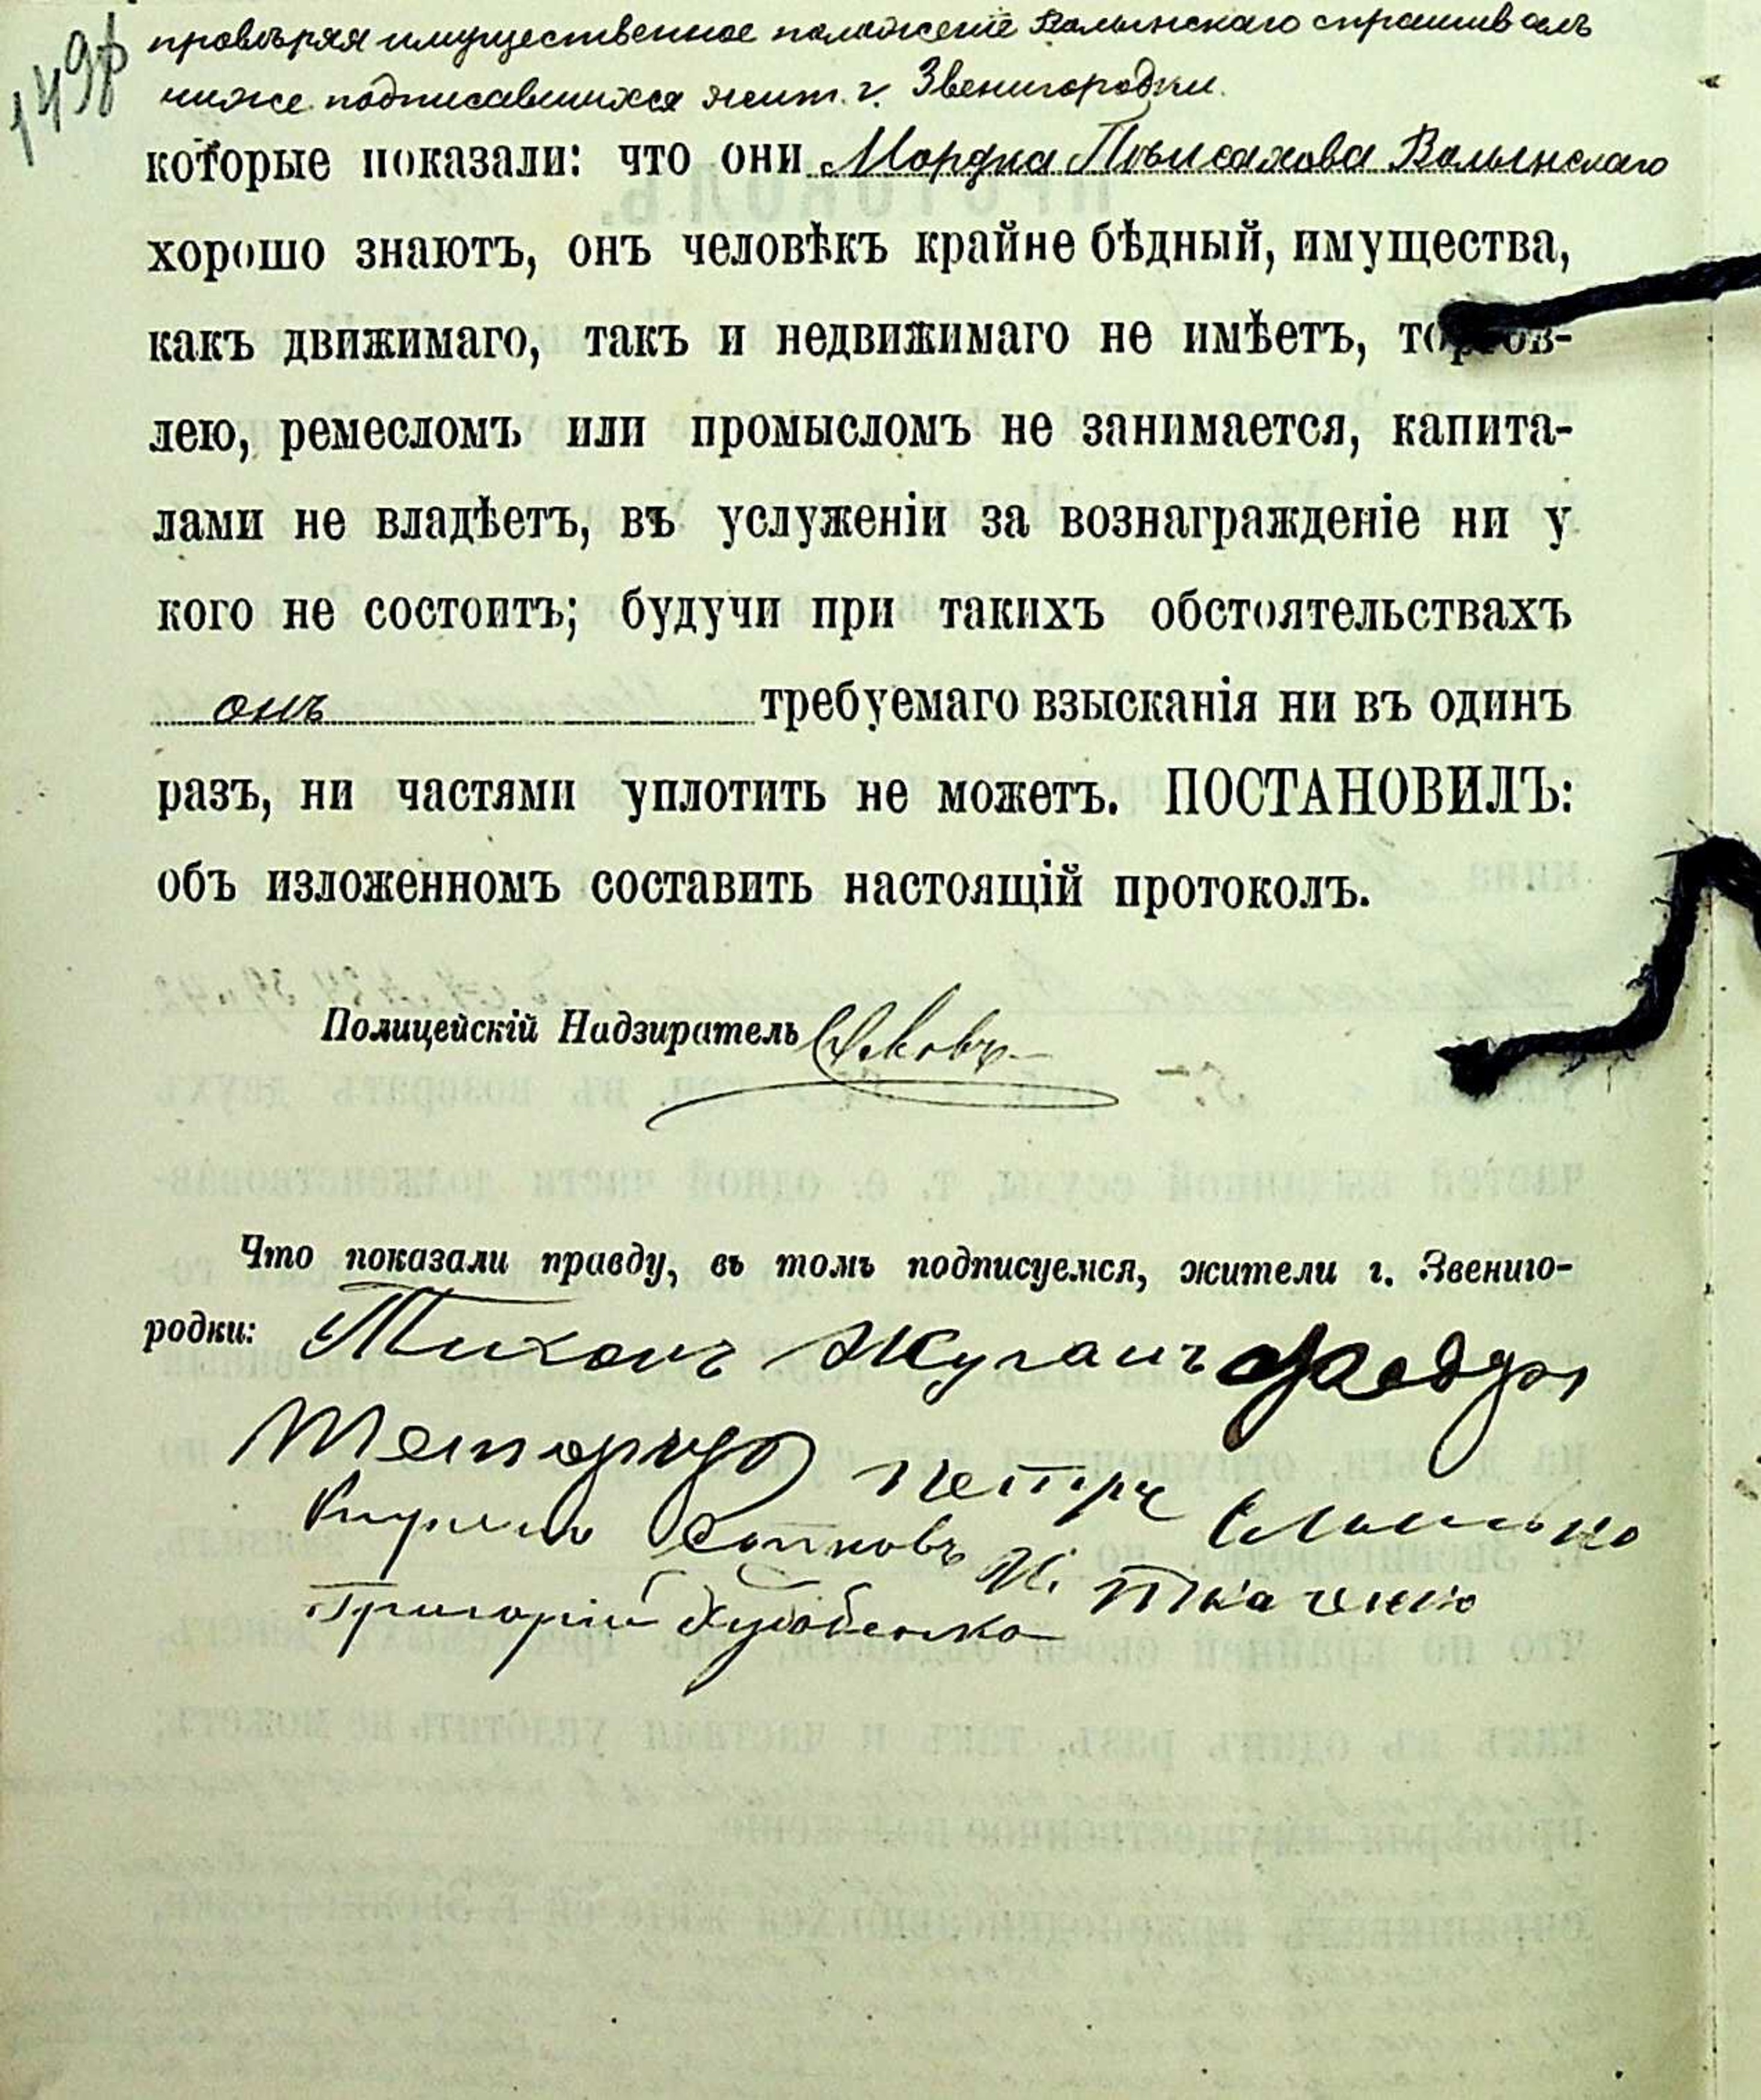 149об
провѣряя имущественное положеніе Волынскаго спрашивалъ
ниже подписавшихся жит. г. Звенигородки.
которые показали: что они Мордка Повисахова Волынскаго
хорошо знаютъ, онъ человѣкъ крайне бѣдный, имущества,
какъ движимаго, такъ и недвижимаго не имѣетъ, торгов-
лею, ремесломъ или промысломъ не занимается, капита-
лами не владѣетъ, въ услуженіи за вознагражденіе ни у
кого не состоитъ; будучи при такихъ обстоятельствахъ
онъ требуемаго взысканія ни въ одинъ
разъ, ни частями уплотить не можетъ. ПОСТАНОВИЛЪ:
объ изложенномъ составить настоящій протоколъ.
Полицейскій Надзиратель
Что показали правду, въ томъ подписуемся, жители г. Звениго-
родки: Тихонъ Жуганъ Фаедоръ
Петръ
Кирило
И. Ткаченко
Григорій Худобенко